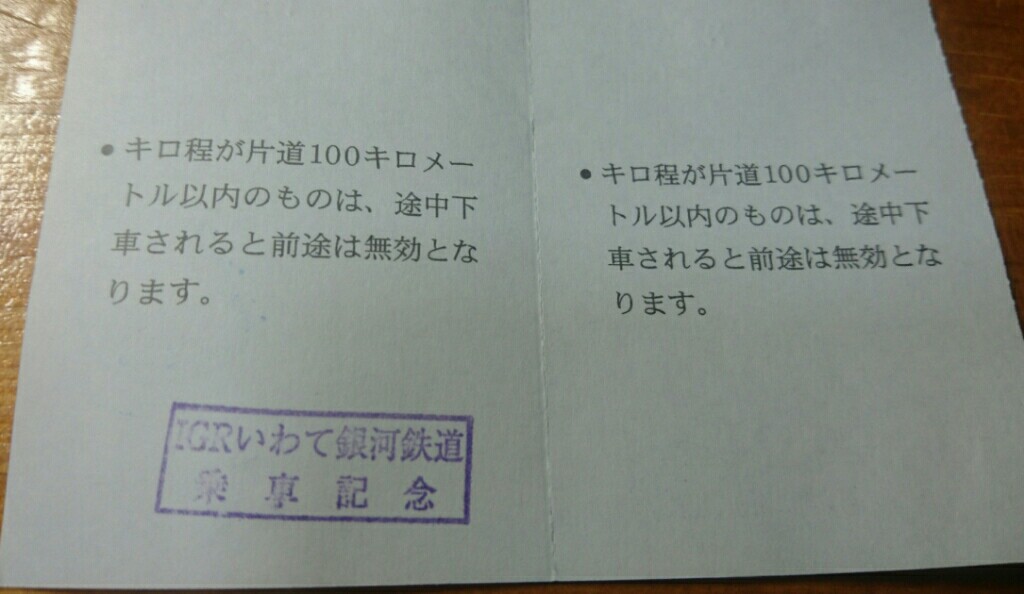 ● キロ程が片道100キロメー
トル以内のものは、途中下
車されると前途は無効とな
ります。
IGRいわて銀河鉄道
乗車記念
● キロ程が片道100キロメー
トル以内のものは、途中下
車されると前途は無効とな
ります。